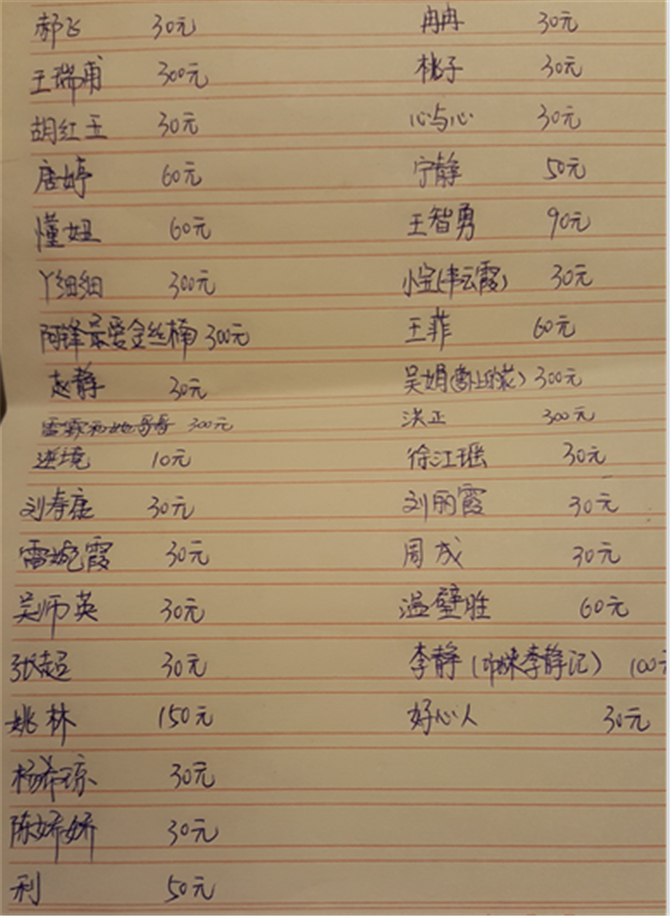 郝飞 30元 冉冉 30元
王瑞甫 300元 桃子 30元
胡红玉 30元 心与心 30元
唐婷 60元 宁静 50元
懂妞 60元 王智勇 90元
丫细细 300元 小宝(韦云霞) 30元
阿锋最爱金丝楠 300元 王菲 60元
赵静 30元 吴娟( ) 300元
雷霖和她哥哥 300元 洪正 300元
逆境 10元 徐江瑶 30元
刘寿康 30元 刘丽霞 30元
雷婉霞 30元 周成 30元
吴师英 30元 温壁胜 60元
张超 30元 李静( 李静记) 100
姚林 150元 好心人 30元
杨希琼 30元
陈娇娇 30元
利 50元